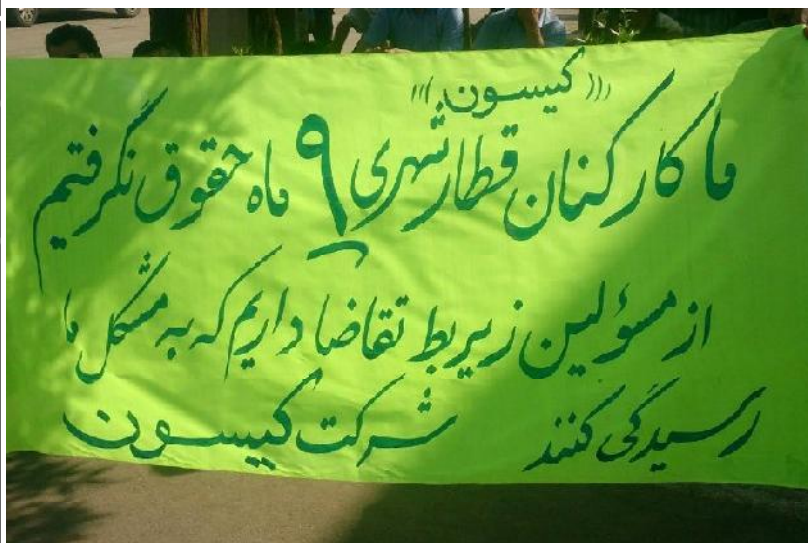 (((کیسون)))
ما کارکنان قطار شهری ۹ ماه حقوق نگرفتیم
از مسؤلین زیربط تقاضا داریم که به مشکل ما
رسیدگی کنند شرکت کیسون